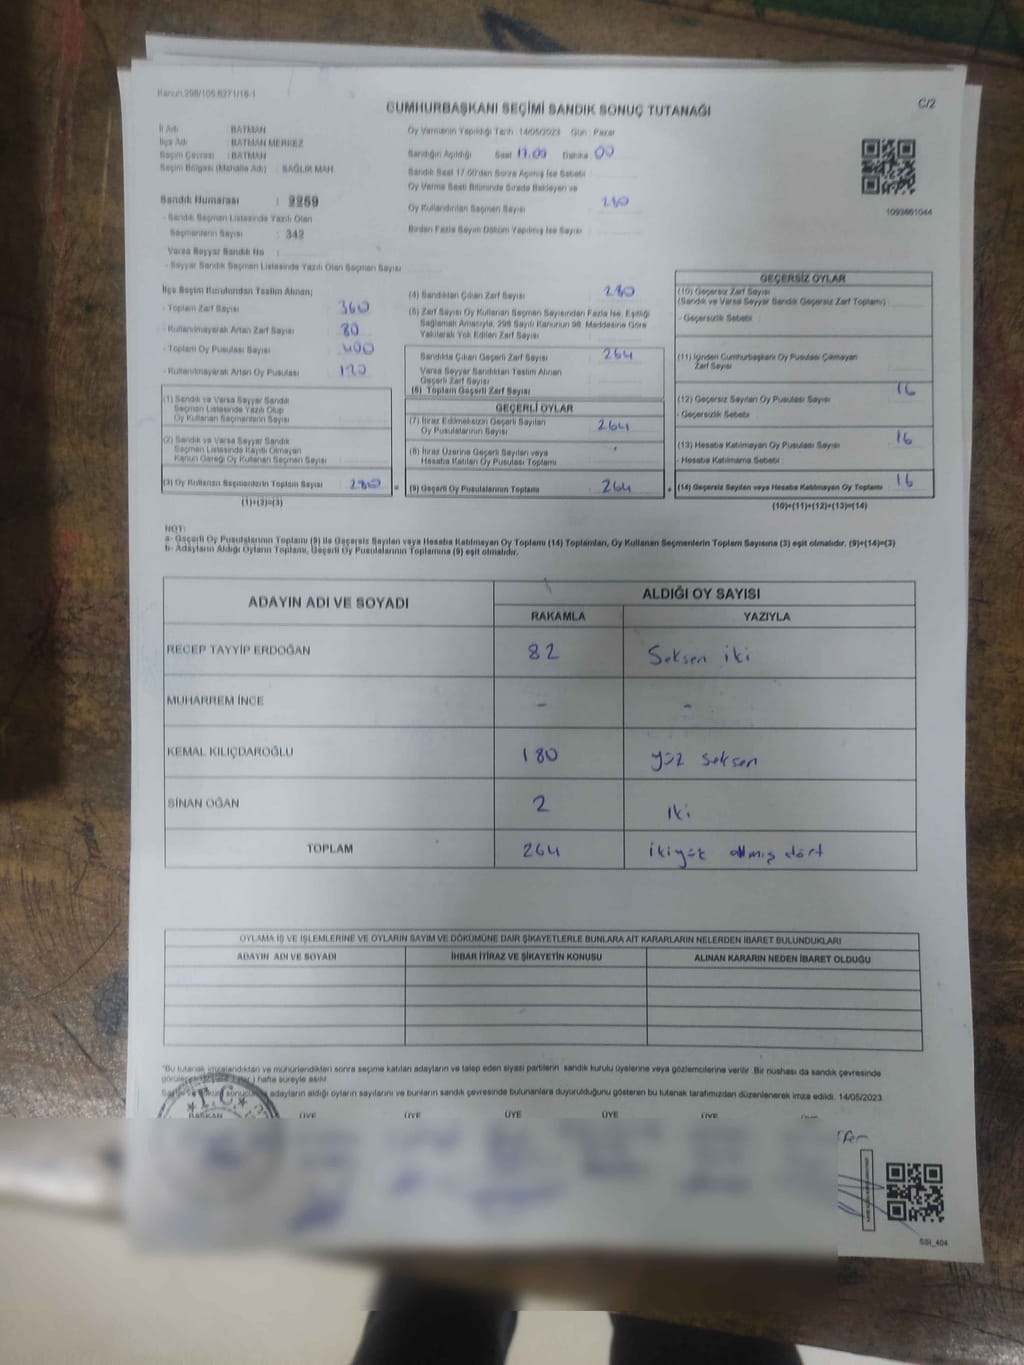 Kanun:298/105,6271/18-1
C/2
CUMHURBAŞKANI SEÇİMİ SANDIK SONUÇ TUTANAĞI
İl Adı : BATMAN
İlçe Adı : BATMAN MERKEZ
Seçim Çevresi : BATMAN
Seçim Bölgesi (Mahalle Adı) : SAĞLIK MAH
Sandık Numarası : 2269
- Sandık Seçmen Listesinde Yazılı Olan
Seçmenlerin Sayısı : 342
Varsa Seyyar Sandık No :
- Seyyar Sandık Seçmen Listesinde Yazılı Olan Seçmen Sayısı
Oy Vermenin Yapıldığı Tarih : 14/05/2023 Gün : Pazar
Sandığın Açıldığı Saat 17.00 Dakika 00
Sandık Saat 17.00'den Sonra Açılmış İse Sebebi
Oy Verme Saati Bitiminde Sırada Bekleyen ve
Oy Kullandırılan Seçmen Sayısı 280
Birden Fazla Sayım Döküm Yapılmış İse Sayısı
1093861044
İlçe Seçim Kurulundan Teslim Alınan;
- Toplam Zarf Sayısı 360
- Kullanılmayarak Artan Zarf Sayısı 80
- Toplam Oy Pusulası Sayısı 400
- Kullanılmayarak Artan Oy Pusulası 120
(1) Sandık ve Varsa Seyyar Sandık
Seçmen Listesinde Yazılı Olup
Oy Kullanan Seçmenlerin Sayısı
(2) Sandık ve Varsa Seyyar Sandık
Seçmen Listesinde Kayıtlı Olmayan
Kanun Gereği Oy Kullanan Seçmen Sayısı
(3) Oy Kullanan Seçmenlerin Toplam Sayısı 280
(1)+(2)=(3)
(4) Sandıktan Çıkan Zarf Sayısı 280
(5) Zarf Sayısı Oy Kullanan Seçmen Sayısından Fazla İse, Eşitliği
Sağlamak Amacıyla, 298 Sayılı Kanunun 98. Maddesine Göre
Yakılarak Yok Edilen Zarf Sayısı
Sandıkta Çıkan Geçerli Zarf Sayısı 264
Varsa Seyyar Sandıktan Teslim Alınan
Geçerli Zarf Sayısı
(6) Toplam Geçerli Zarf Sayısı
GEÇERLİ OYLAR
(7) İtiraz Edilmeksizin Geçerli Sayılan
Oy Pusulalarının Sayısı 264
(8) İtiraz Üzerine Geçerli Sayılan veya
Hesaba Katılan Oy Pusulası Toplamı
(9) Geçerli Oy Pusulalarının Toplamı 264
GEÇERSİZ OYLAR
(10) Geçersiz Zarf Sayısı
(Sandık ve Varsa Seyyar Sandık Geçersiz Zarf Toplamı)
- Geçersizlik Sebebi
(11) İçinden Cumhurbaşkanı Oy Pusulası Çıkmayan
Zarf Sayısı
(12) Geçersiz Sayılan Oy Pusulası Sayısı 16
- Geçersizlik Sebebi
(13) Hesaba Katılmayan Oy Pusulası Sayısı 16
- Hesaba Katılmama Sebebi
(14) Geçersiz Sayılan veya Hesaba Katılmayan Oy Toplamı 16
(10)+(11)+(12)+(13)=(14)
NOT:
a- Geçerli Oy Pusulalarının Toplamı (9) ile Geçersiz Sayılan veya Hesaba Katılmayan Oy Toplamı (14) Toplamları, Oy Kullanan Seçmenlerin Toplam Sayısına (3) eşit olmalıdır. (9)+(14)=(3)
b- Adayların Aldığı Oyların Toplamı, Geçerli Oy Pusulalarının Toplamına (9) eşit olmalıdır.
ADAYIN ADI VE SOYADI
ALDIĞI OY SAYISI
RAKAMLA YAZIYLA
RECEP TAYYİP ERDOĞAN 82 Seksen iki
MUHARREM İNCE - -
KEMAL KILIÇDAROĞLU 180 yüz seksen
SİNAN OĞAN 2 iki
TOPLAM 264 ikiyüz altmış dört
OYLAMA İŞ VE İŞLEMLERİNE VE OYLARIN SAYIM VE DÖKÜMÜNE DAİR ŞİKAYETLERLE BUNLARA AİT KARARLARIN NELERDEN İBARET BULUNDUKLARI
ADAYIN ADI VE SOYADI İHBAR İTİRAZ VE ŞİKAYETİN KONUSU ALINAN KARARIN NEDEN İBARET OLDUĞU
"Bu tutanak imzalandıktan ve mühürlendikten sonra seçime katılan adayların ve talep eden siyasi partilerin sandık kurulu üyelerine veya gözlemcilerine verilir. Bir nüshası da sandık çevresinde
hafta süreyle asılır.
adayların aldığı oyların sayılarını ve bunların sandık çevresinde bulunanlara duyurulduğunu gösteren bu tutanak tarafımızdan düzenlenerek imza edildi. 14/05/2023
T.C.
BAŞKAN ÜYE ÜYE ÜYE ÜYE ÜYE
SSI_404